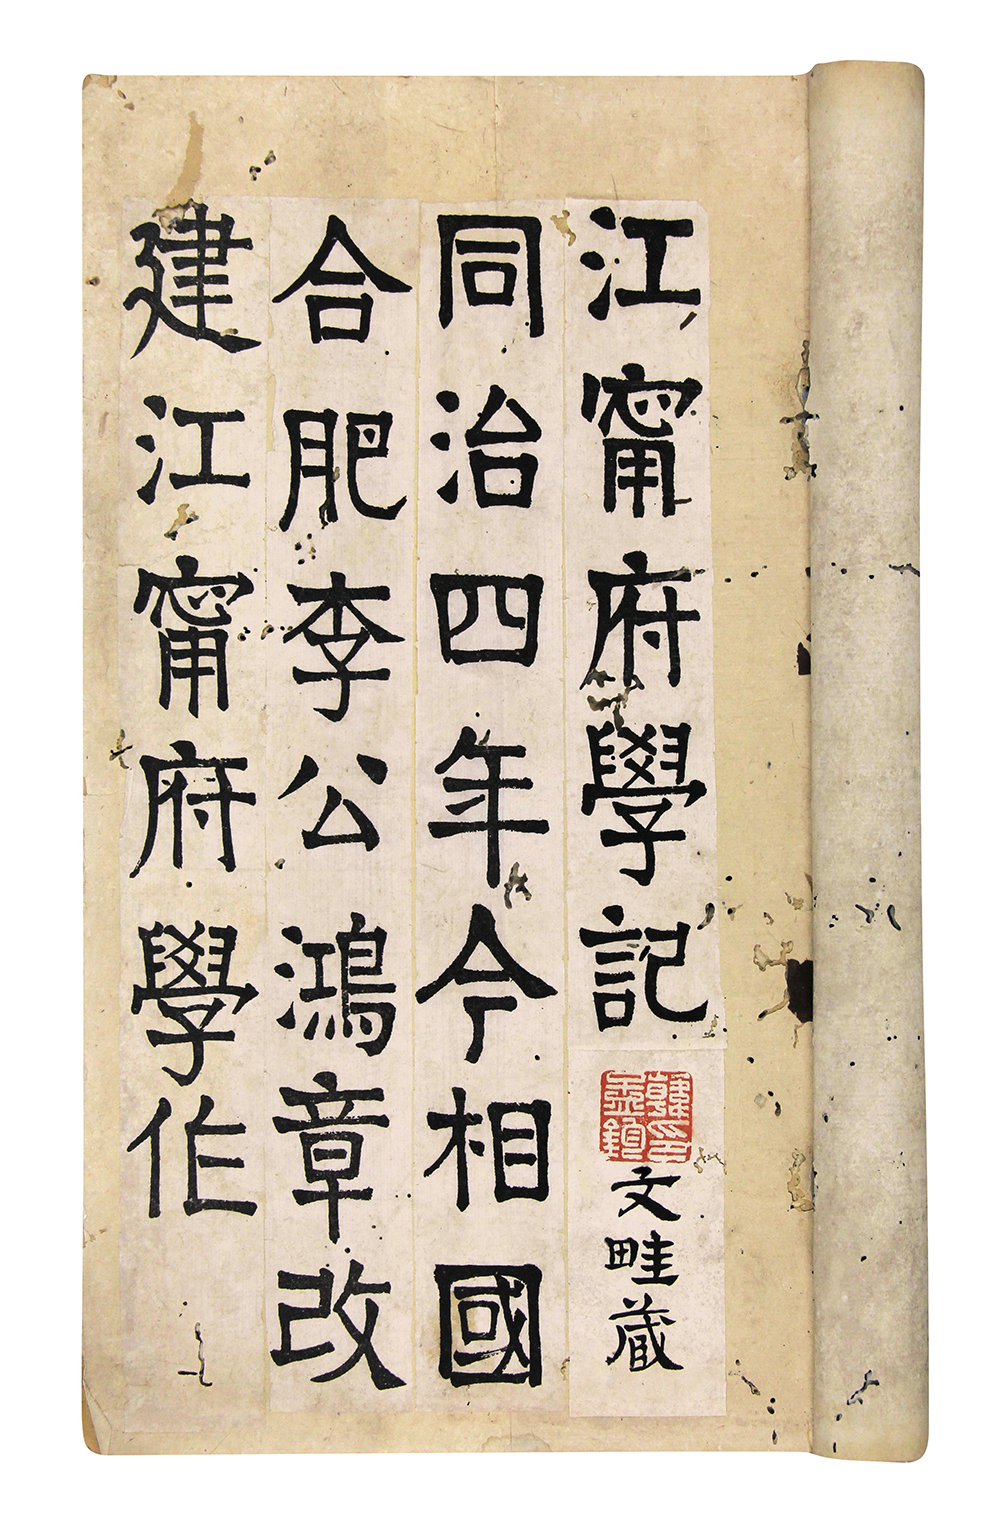 江甯府學記
韓印
文畦藏
同治四年今相國
合肥李公鴻章改
建江甯府學作